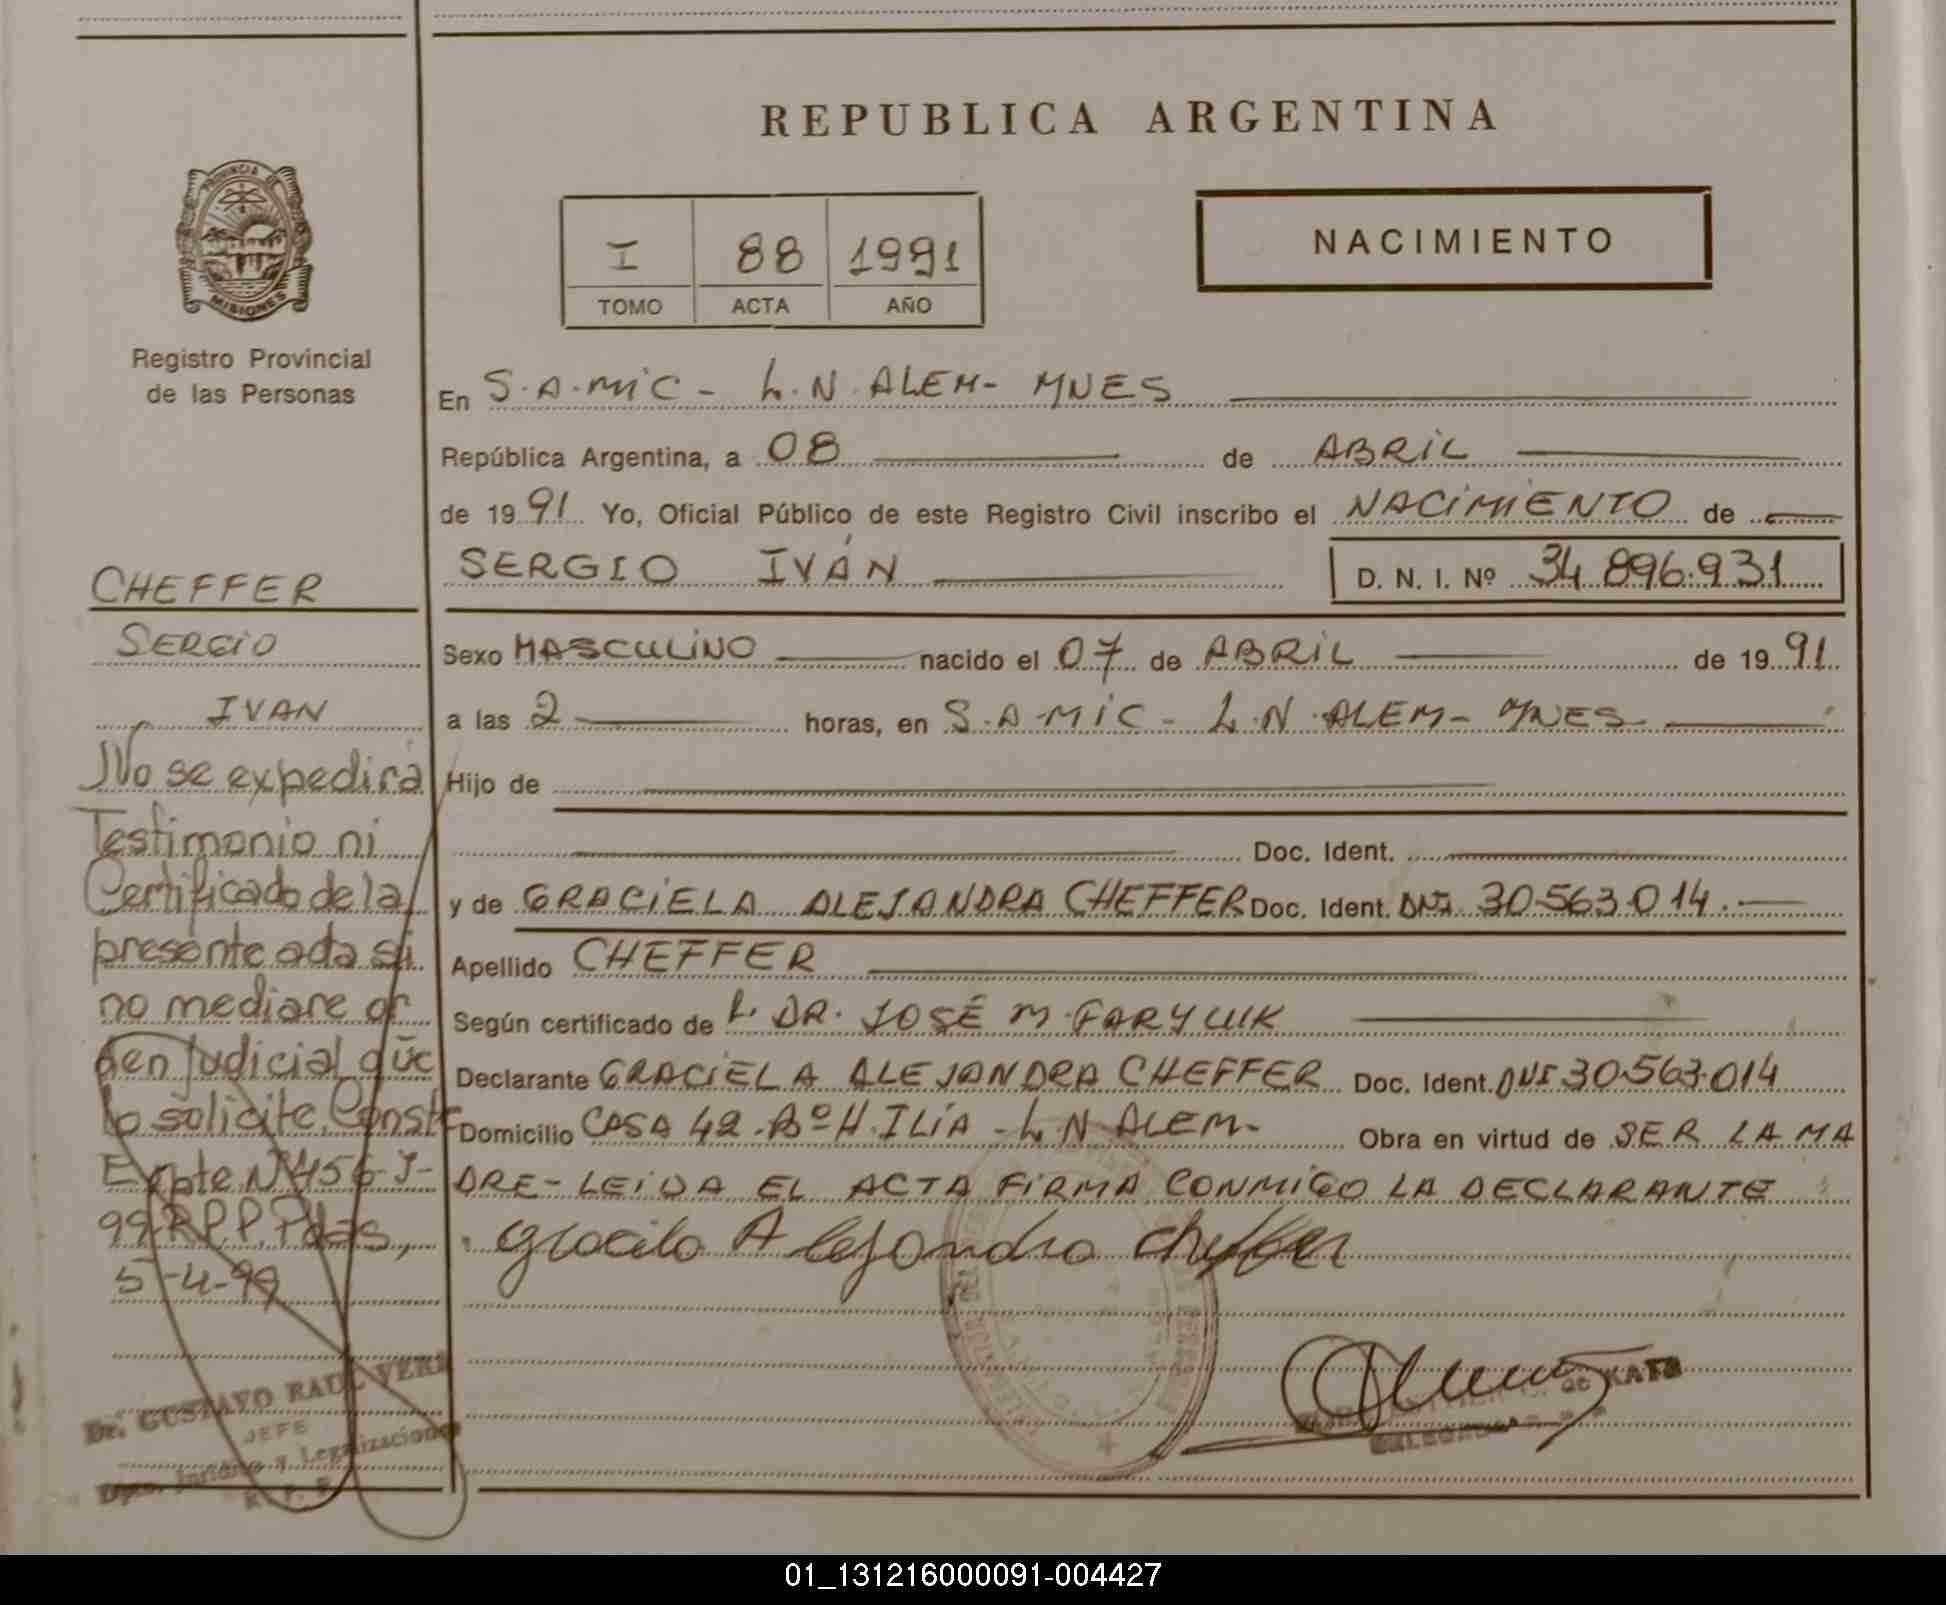 REPUBLICA ARGENTINA
PROVINCIA DE
MISIONES
Registro Provincial
de las Personas
I 88 1991
TOMO ACTA AÑO
NACIMIENTO
En S.A.MIC - L.N. ALEM - MNES
República Argentina, a 08 de ABRIL
de 1991 Yo, Oficial Público de este Registro Civil inscribo el NACIMIENTO de
SERGIO IVÁN D. N. I. Nº 34.896.931
Sexo MASCULINO nacido el 07 de ABRIL de 1991
a las 2 horas, en S.A.MIC - L.N. ALEM - MNES
Hijo de
Doc. Ident.
y de GRACIELA ALEJANDRA CHEFFER Doc. Ident. DNI 30.563.014.
Apellido CHEFFER
Según certificado de L. DR. JOSÉ M. FARYLUIK
Declarante GRACIELA ALEJANDRA CHEFFER Doc. Ident. DNI 30.563.014
Domicilio CASA 42 - Bº H. ILIA - L.N. ALEM - Obra en virtud de SER LA MA
DRE - LEIDA EL ACTA FIRMA CONMIGO LA DECLARANTE
Graciela Alejandra Cheffer
CHEFFER
SERGIO
IVAN
No se expedirá
Testimonio ni
Certificado de la
presente acta si
no mediare or
den Judicial que
lo solicite. Const.
Expte Nº 456-J-
99-R.P.P. Pdas,
5-4-99
Dr. GUSTAVO RAUL VERA
JEFE
Dpto. Jurídico y Legalizaciones
R. P. P.
01_131216000091-004427